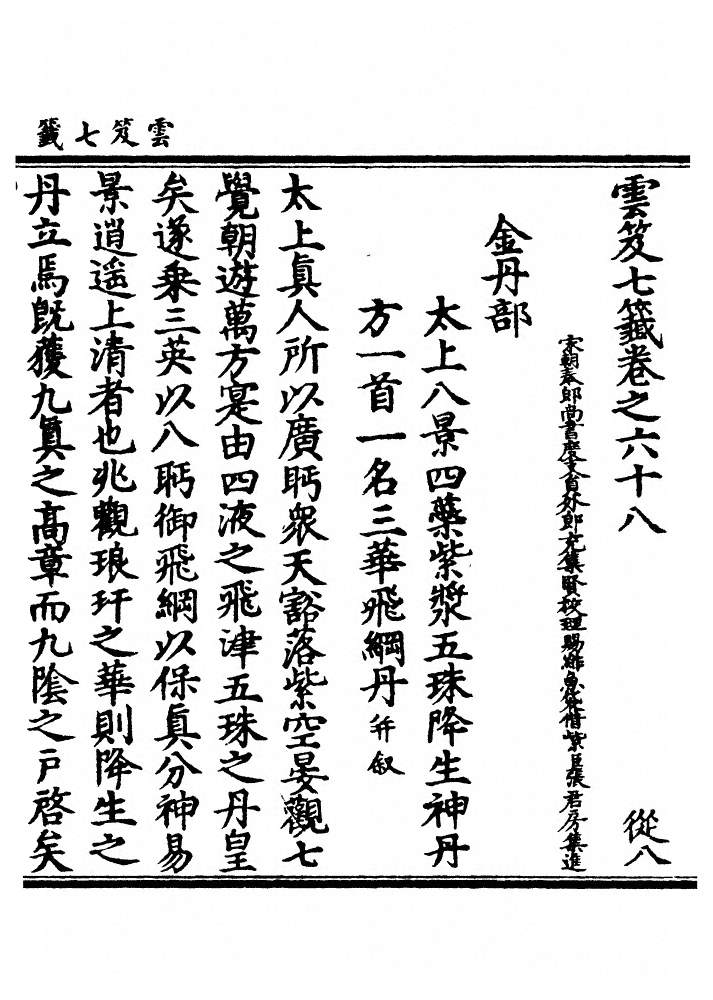 雲笈七籤
雲笈七籤卷之六十八　從八
宋朝奉郎尚書度支員外郎充集賢校理賜緋魚袋借紫臣張君房集進
金丹部
太上八景四藥紫漿五珠降生神丹
方一首一名三華飛綱丹并叙
太上眞人所以廣眄衆天豁落紫空晏觀七
覺朝遊萬方寔由四液之飛津五珠之丹皇
矣遂乘三英以八眄御飛綱以保眞分神易
景逍遥上清者也兆觀琅玕之華則降生之
丹立焉旣獲九眞之高章而九陰之戶啓矣